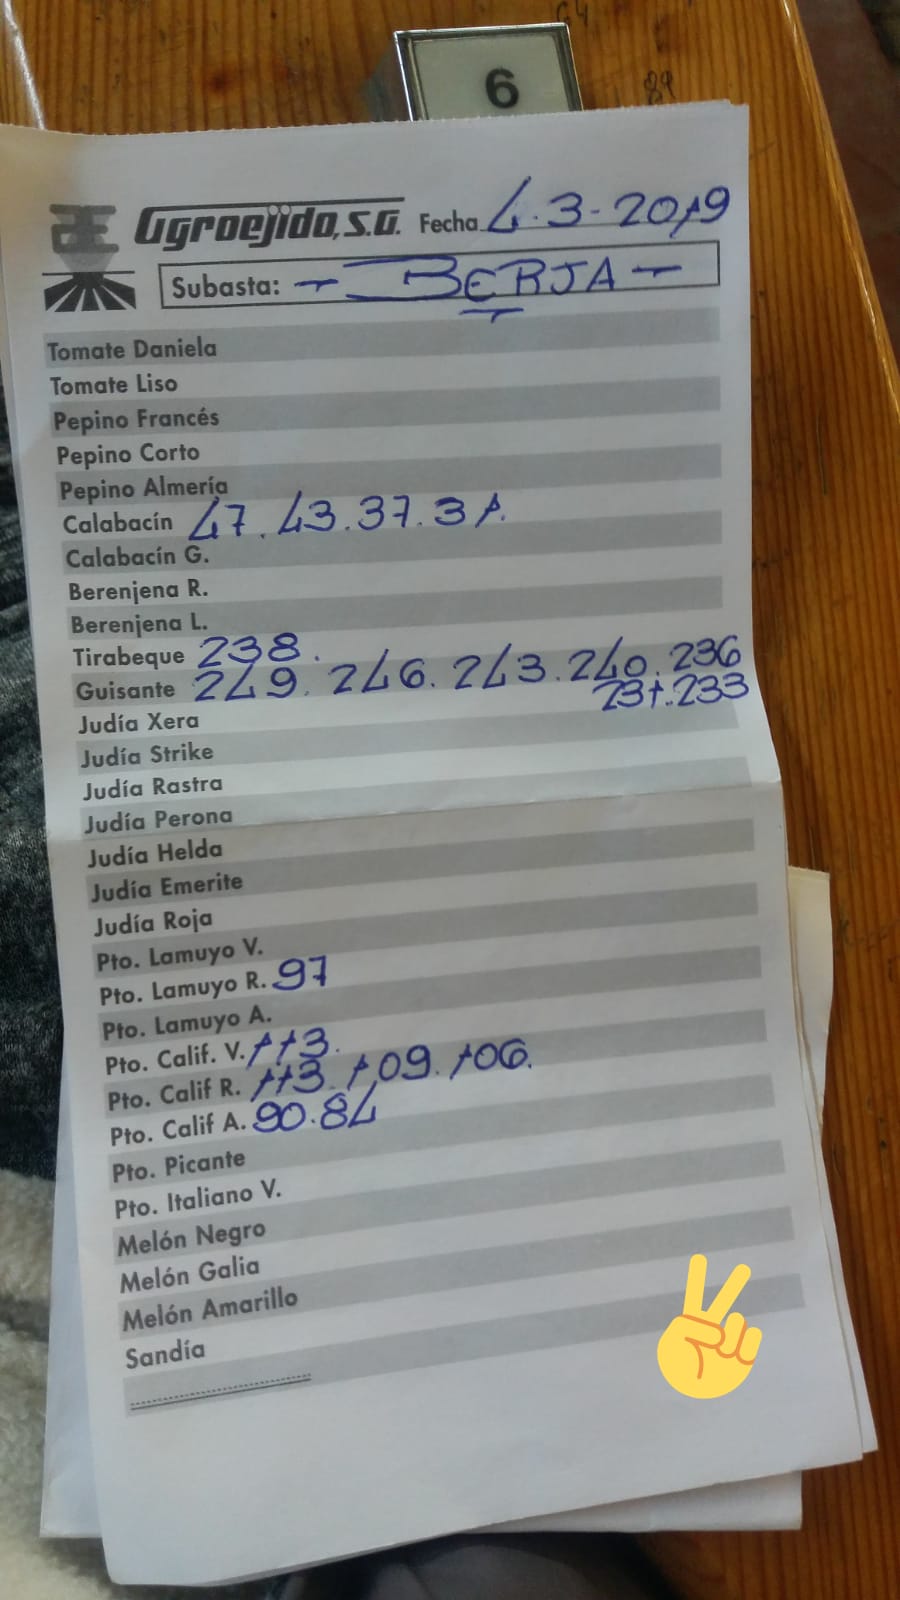 6
Agroejido, S.A. Fecha 4.3-2019
Subasta: - BERJA -
Tomate Daniela
Tomate Liso
Pepino Francés
Pepino Corto
Pepino Almería
Calabacín 47.43.37.31.
Calabacín G.
Berenjena R.
Berenjena L.
Tirabeque 238.
Guisante 249.246.243.240.236
231.233
Judía Xera
Judía Strike
Judía Rastra
Judía Perona
Judía Helda
Judía Emerite
Judía Roja
Pto. Lamuyo V.
Pto. Lamuyo R. 97
Pto. Lamuyo A.
Pto. Calif. V. 113.
Pto. Calif R. 113.109.106.
Pto. Calif A. 90.84
Pto. Picante
Pto. Italiano V.
Melón Negro
Melón Galia
Melón Amarillo
Sandía